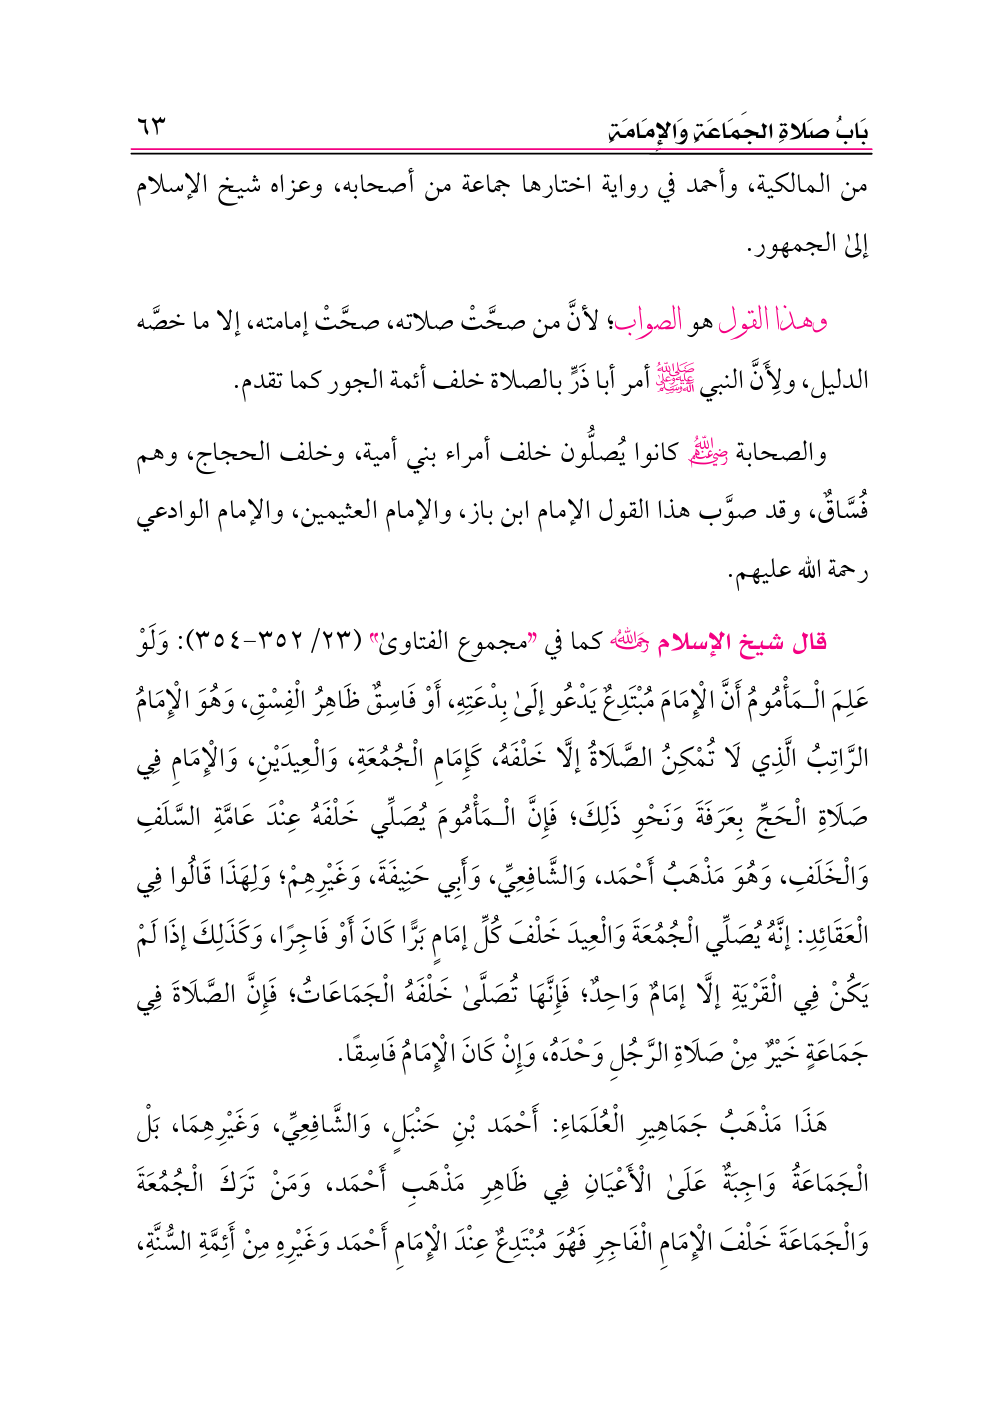 بَابُ صَلاةِ الجَمَاعَةِ وَالإِمَامَةِ ٦٣
من المالكية، وأحمد في رواية اختارها جماعة من أصحابه، وعزاه شيخ الإسلام
إلىٰ الجمهور.
وهذا القول هو الصواب؛ لأنَّ من صحَّتْ صلاته، صحَّتْ إمامته، إلا ما خصَّه
الدليل، ولِأَنَّ النبي ﷺ أمر أبا ذَرٍّ بالصلاة خلف أئمة الجور كما تقدم.
والصحابة رضي الله عنهم كانوا يُصلُّون خلف أمراء بني أمية، وخلف الحجاج، وهم
فُسَّاقٌ، وقد صوَّب هذا القول الإمام ابن باز، والإمام العثيمين، والإمام الوادعي
رحمة الله عليهم.
قال شيخ الإسلام رحمه الله كما في "مجموع الفتاوىٰ" (٢٣/ ٣٥٢-٣٥٤): وَلَوْ
عَلِمَ الْـمَأْمُومُ أَنَّ الْإِمَامَ مُبْتَدِعٌ يَدْعُو إلَىٰ بِدْعَتِهِ، أَوْ فَاسِقٌ ظَاهِرُ الْفِسْقِ، وَهُوَ الْإِمَامُ
الرَّاتِبُ الَّذِي لَا تُمْكِنُ الصَّلَاةُ إلَّا خَلْفَهُ، كَإِمَامِ الْجُمُعَةِ، وَالْعِيدَيْنِ، وَالْإِمَامِ فِي
صَلَاةِ الْحَجِّ بِعَرَفَةَ وَنَحْوِ ذَلِكَ؛ فَإِنَّ الْـمَأْمُومَ يُصَلِّي خَلْفَهُ عِنْدَ عَامَّةِ السَّلَفِ
وَالْخَلَفِ، وَهُوَ مَذْهَبُ أَحْمَد، وَالشَّافِعِيِّ، وَأَبِي حَنِيفَةَ، وَغَيْرِهِمْ؛ وَلِهَذَا قَالُوا فِي
الْعَقَائِدِ: إنَّهُ يُصَلِّي الْجُمُعَةَ وَالْعِيدَ خَلْفَ كُلِّ إمَامٍ بَرًّا كَانَ أَوْ فَاجِرًا، وَكَذَلِكَ إذَا لَمْ
يَكُنْ فِي الْقَرْيَةِ إلَّا إمَامٌ وَاحِدٌ؛ فَإِنَّهَا تُصَلَّىٰ خَلْفَهُ الْجَمَاعَاتُ؛ فَإِنَّ الصَّلَاةَ فِي
جَمَاعَةٍ خَيْرٌ مِنْ صَلَاةِ الرَّجُلِ وَحْدَهُ، وَإِنْ كَانَ الْإِمَامُ فَاسِقًا.
هَذَا مَذْهَبُ جَمَاهِيرِ الْعُلَمَاءِ: أَحْمَد بْنِ حَنْبَلٍ، وَالشَّافِعِيِّ، وَغَيْرِهِمَا، بَلْ
الْجَمَاعَةُ وَاجِبَةٌ عَلَىٰ الْأَعْيَانِ فِي ظَاهِرِ مَذْهَبِ أَحْمَد، وَمَنْ تَرَكَ الْجُمُعَةَ
وَالْجَمَاعَةَ خَلْفَ الْإِمَامِ الْفَاجِرِ فَهُوَ مُبْتَدِعٌ عِنْدَ الْإِمَامِ أَحْمَد وَغَيْرِهِ مِنْ أَئِمَّةِ السُّنَّةِ،